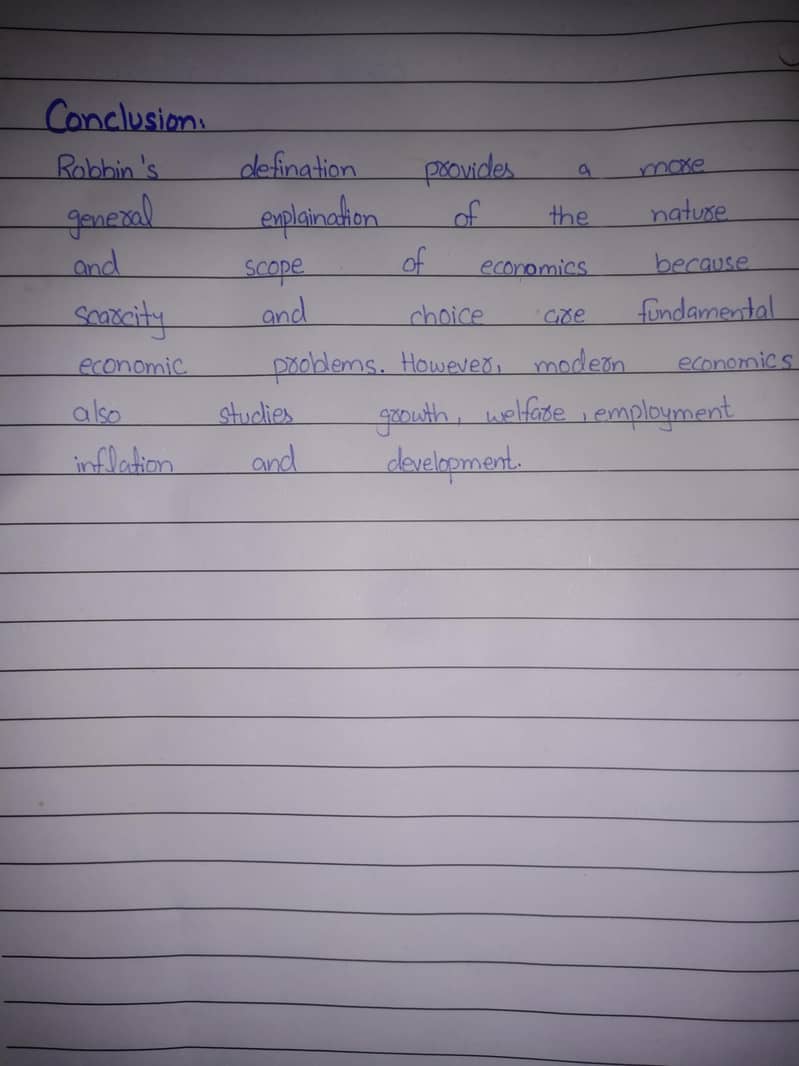 Conclusion.
Robbin's defination provides a more
general enplaination of the nature
and scope of economics because
scarcity and choice are fundamental
economic problems. However, modern economics
also studies growth, welfare, employment
inflation and development.